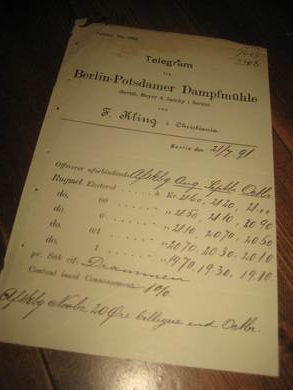 Telegram
fra
Berlin-Potsdamer Dampfmühle
ved
F. Kling i Christiania.
Berlin den 21/7 91
Offererer uforbindende Afskbg Aug. Septbr Octbr.
Rugmel Electoral . . . . à Kr. 21.60 21.20 21.00
do. 00 . . . . „ 21.50 21.10 20.90
do. 0 . . . . „ 21.10 20.70 20.50
do. 0/I . . . . „ 20.70 20.30 20.10
do. I . . . . „ 19.70 19.30 19.10
pr. Sæk cif. Drammen
Contant imod Connossement 1 0/0
Afskbg Novbr 20 Øre billigere end Octbr.